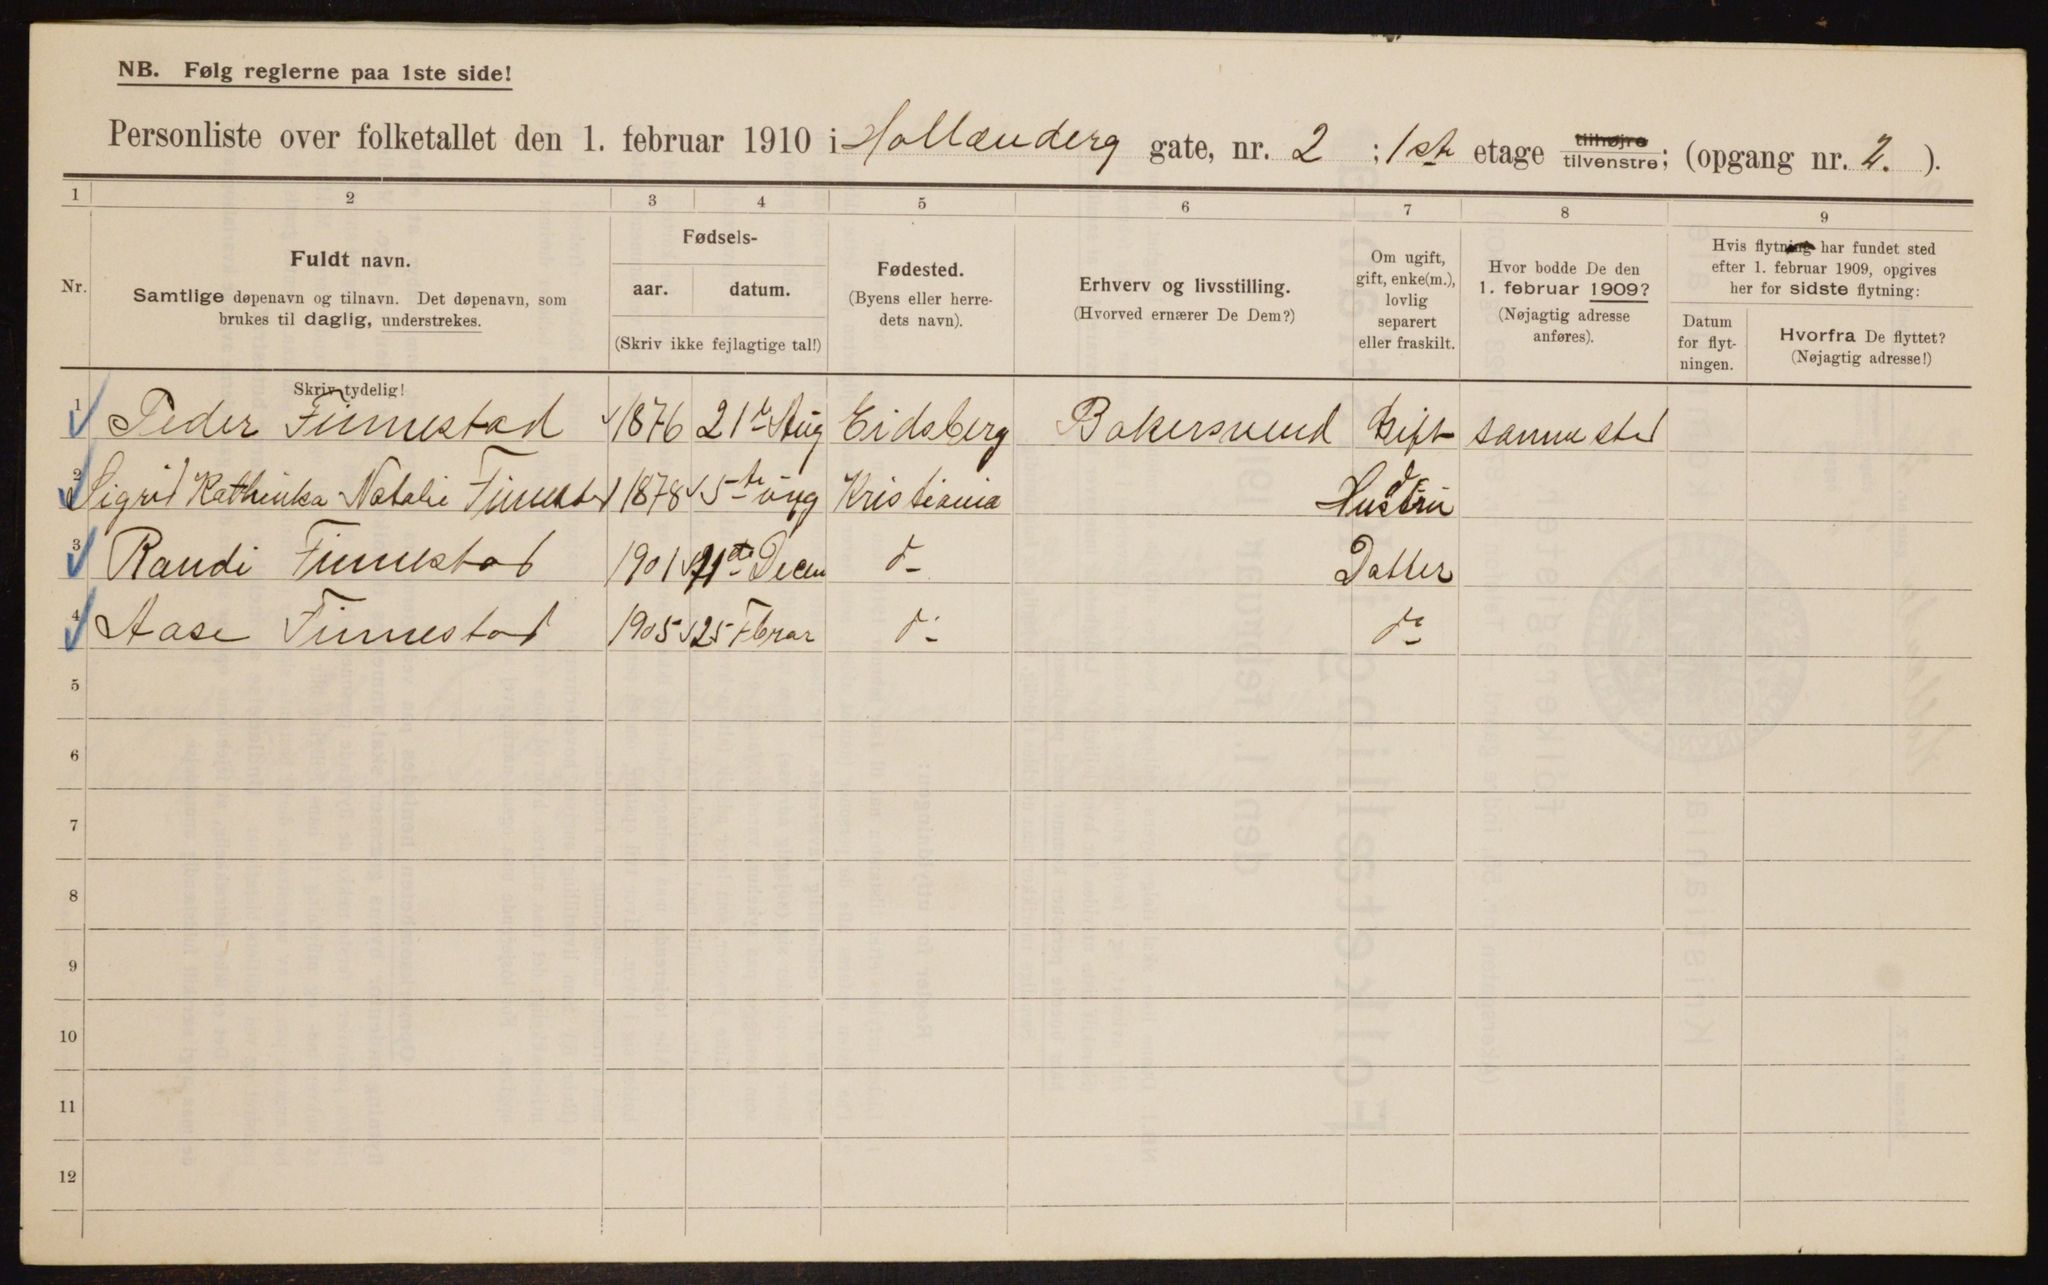 NB. Følg reglerne paa 1ste side!
Personliste over folketallet den 1. februar 1910 i Hollænderg gate, nr. 2 ; 1st etage tilhøjre tilvenstre; (opgang nr. 2. ).
1 2 3 4 5 6 7 8 9
Nr.
Fuldt navn.
Samtlige døpenavn og tilnavn. Det døpenavn, som
brukes til daglig, understrekes.
Skriv tydelig!
Fødsels-
aar. datum.
(Skriv ikke fejlagtige tal!)
Fødested.
(Byens eller herre-
dets navn).
Erhverv og livsstilling.
(Hvorved ernærer De Dem?)
Om ugift,
gift, enke(m.),
lovlig
separert
eller fraskilt.
Hvor bodde De den
1. februar 1909?
(Nøjagtig adresse
anføres).
Hvis flytning har fundet sted
efter 1. februar 1909, opgives
her for sidste flytning:
Datum
for flyt-
ningen.
Hvorfra De flyttet?
(Nøjagtig adresse!)
1 Peder Finnestad 1876 21de Aug Eidsberg Bakersvend Gift samme sted
2 Sigrid Kathinka Natalie Finnestad 1878 5te Kristiania Hustru
3 Randi Finnestad 1901 Decem do Datter
4 Aase Finnestad 1905 25 Febrar do do
5
6
7
8
9
10
11
12